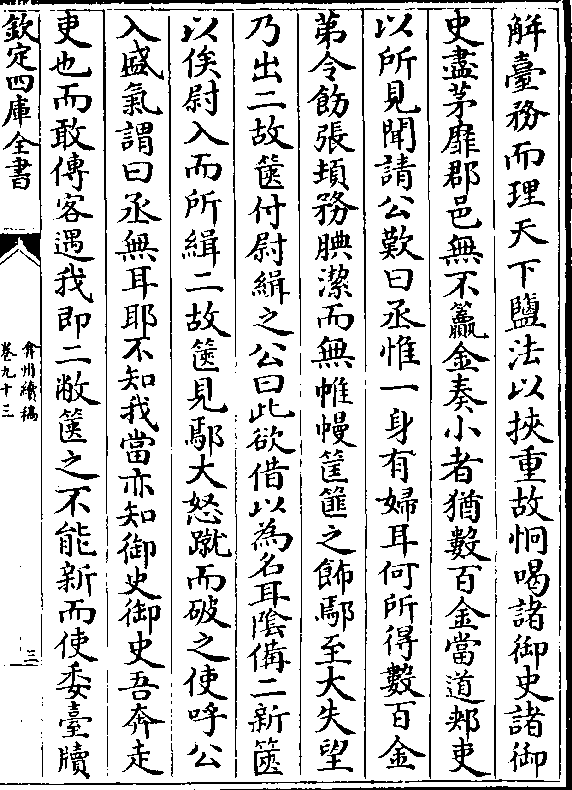 解臺務而理天下鹽法以挾重故恫喝諸御史諸御
史盡茅靡郡邑無不籯金奏小者猶數百金當道郟吏
以所見聞請公歎曰丞惟一身有婦耳何所得數百金
第令飭張頓務腆潔而無帷幔筐篚之飾鄢至大失望
乃出二故篋付尉緝之公曰此欲借以為名耳陰備二新篋
以俟尉入而所緝二故篋見鄢大怒蹴而破之使呼公
入盛氣謂曰丞無耳耶不知我當亦知御史御史吾奔走
吏也而敢傳客遇我即二敝篋之不能新而使委臺牘
欽定四庫全書
弇州續稿
卷九十三
三